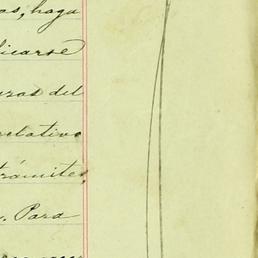 os, haga
licarse
uras del
relativo
trámites,
. Para